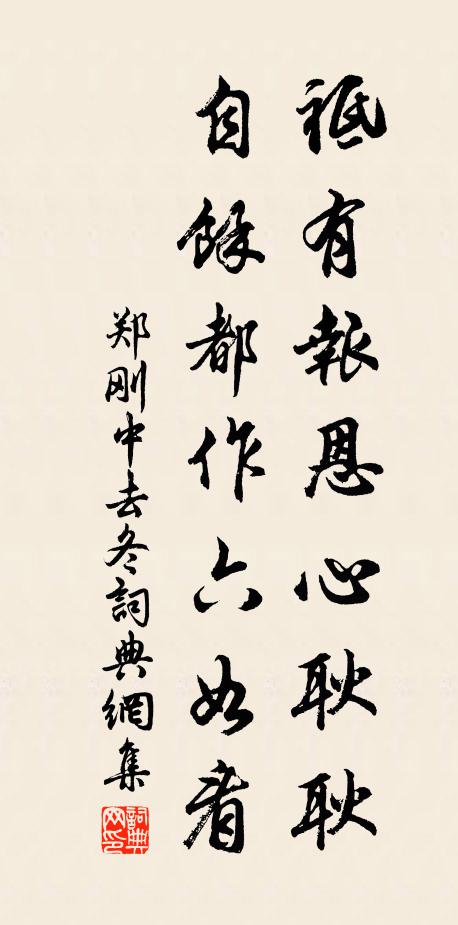 祗有報恩心耿耿
自餘都作六如看
郑刚中去冬詞典網集
詞典网印